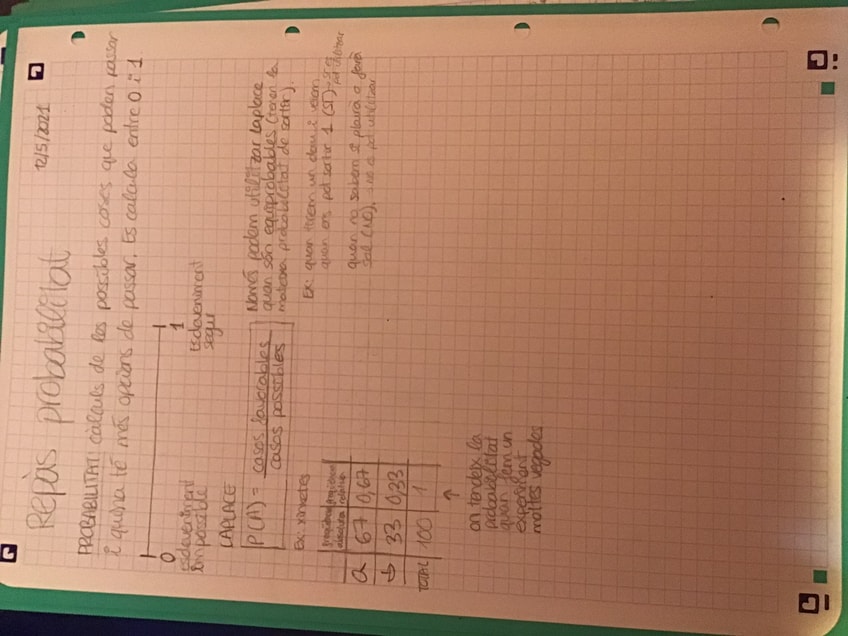 Repàs probabilitat 12/5/2021
PROBABILITAT: càlculs de les possibles coses que poden passar
i quina té més opcions de passar. Es calcula entre 0 i 1.
0 1
esdeveniment impossible
Esdeveniment segur
LAPLACE
P(A) = casos favorables
casos possibles
Només podem utilitzar Laplace
quan són equiprobables (tenen la
mateixa probabilitat de sortir).
Ex: quan tirem un dau i volem
quan ens pot sortir 1 (SÍ) pot utilitzar
quan no sabem si plourà o farà
sol (NO), no es pot utilitzar
Ex: xinxetes
freqüència absoluta freqüència relativa
67 0,67
33 0,33
TOTAL 100 1
↑
on tendeix la
probabilitat
quan fem un
experiment
moltes vegades